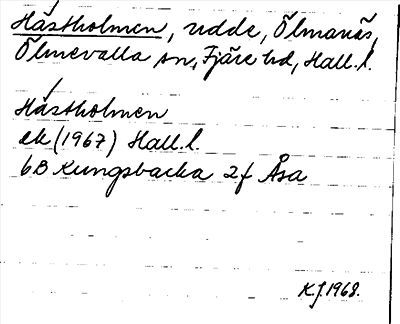 Hästholmen, udde, Ölmanäs,
Ölmevalla sn, Fjäre hd, Hall.l.
Hästholmen
ek (1967) Hall.l.
6B Kungsbacka 2f Åsa
K.J. 1968.